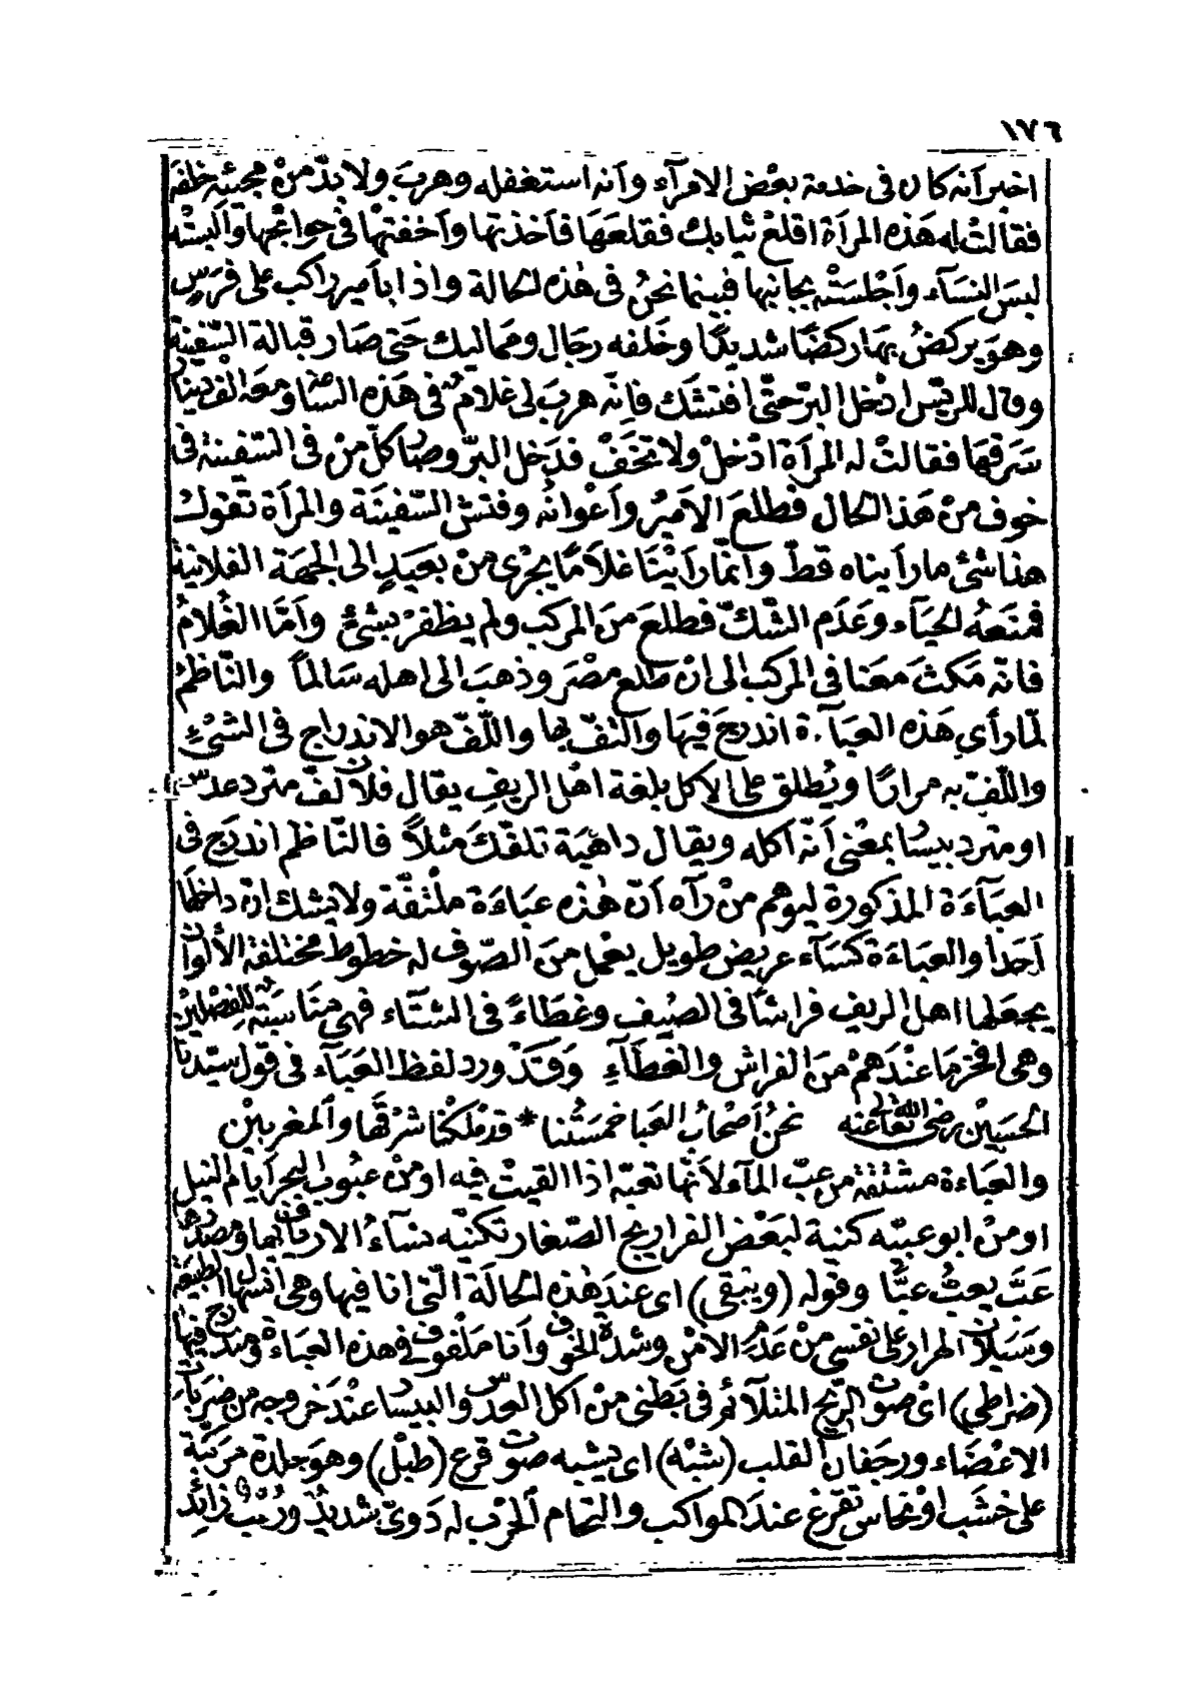 ١٧٦
اخبر أنه كان فى خدمة بعْض الامرآء وأنه استغفله وهربَ ولا بدّ منْ مجيئه خلفه
فقالتْ له هَذه المرأة اقلعْ ثيابك فقلعَهَا فأخذتها وأخفتهْا فى حوائجها وألبسْته
لبسَ النسَآء وأجْلسَتْه بجانبها فبينما نحنُ فى هٰذه الحالة واذا بأمير راكب على فرَسٍ
وهوَ يركضُ بهَا ركضًا شديدًا وخلفه رجال ومماليك حَتى صَار قبالة السّفينة
وقال للريّس ادْخل البرّ حتّى افتشك فإنّه هربَ لى غلام فى هَذه الساعة ومعَه الف دينار
سَرقهَا فقالتْ له المرأة ادْخلْ ولا تخَفْ فدَخل البرّ وصَار كلّ منْ فى السّفينة فى
خوف منْ هَذا الحال فطلعَ الأميرُ وأعْوانُه وفتش السّفينَة والمرأة تقولُ
هذا شئ ما رأيناه قطّ وانّما رأيْنَا غلاَمًا يجْرى منْ بعَيدٍ الى الجهَة الفلانية
فمنعَهُ الحيَآء وعَدَم الشّكّ فطلعَ منَ المركب ولم يظفرْ بشئ وأمَّا الغُلامُ
فانّه مَكثَ مَعَنا فى المركب الى انْ طلعَ مصْرَ وذهبَ الى اهله سَالماً والنّاظمُ
لمّا رأى هَذه العبَآءة اندرجَ فيهَا والتفّ بها واللّفّ هو الاندراج فى الشئِ
واللّفّ به مرارًا ويُطلق على الاكل بلغة اهْل الريف يقال فلان لفّ مترد عدس
او مترد بيسَار بمعْنى أنّه أكله ويقال داهيَة تلفّكَ مثلاً فالنّاظم اندرَج فى
العبَآءَة المذكورة ليوهم منْ رآه أنّ هٰذه عبَاءَة ملْتفّة ولا يشك انّ داخلهَا
أحَدا والعبَاءَة كسَآء عريض طويل يعْمل منَ الصّوف له خطوط مختلفة الألوان
يجعَلها اهل الريف فراشًا فى الصّيف وغطَاءً فى الشتَآء فهى منَاسبَة للفصْلين
وهى افخر مَا عنْدَهمْ منَ الفراش والغطَآءِ وَقَدْ ورد لفظ العَبَآء فى قول سيّدنا
الحسَين رضى الله تعَالى عنه نحنُ أصْحابُ العَبا خمسَتُنا * قدْ ملكْنا شرْقَهَا والمغربيْن
والعبَاءة مشتقة من عبّ المآء لأنّها تعبّه اذا القيتْ فيه او منْ عبُوب البحر أيام النيل
او منْ ابو عبيّه كنية لبَعْض الفراريج الصّغار تكنيّه نسَآءُ الارياف بها ومصدرها
عَبَّ يعبُّ عبًّا وقوله (ويَبقى) اى عندَ هٰذه الحالَة الّتى انا فيها وهى انسهال الطبيعة
وسَيَلان الهرار على نفسى منْ عَدَم الامْن وشدّة الخوف وأنا مَلفوف فى هذه العبَاءة ومندرج فيها
(ضراطى) اىْ صوْت الرّيح المتلآئم فى بَطنى منْ أكل العدس والبيسار عنْدَ خروجه من ضربَات
الاعْضَاء ورجَفان القلب (شبْه) اى يشبه صوْت قرع (طبْل) وهوَ جلدة مركبة
على خشَب اوْ نحاس تقرعُ عندَ المواكب والتحام الحرْب له دَوىّ شديدٌ ورُعْب زائد